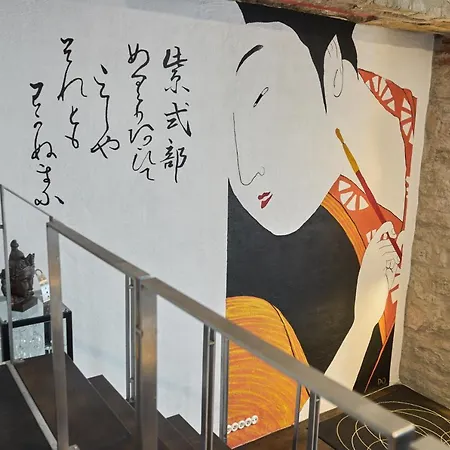 紫式部
めぐりあひて
見しや
それとも
わかぬまに